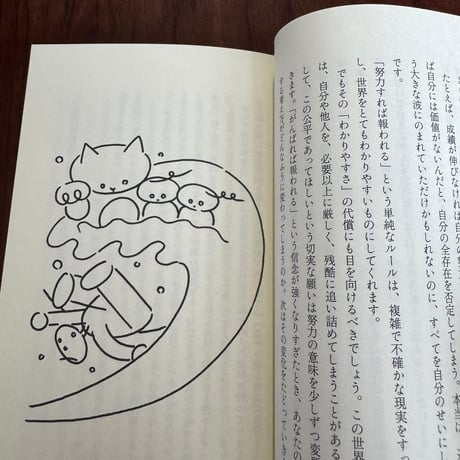 たとえば、成績が伸びなければ自分の努
ば自分には価値がないんだと、自分の全存在を否定してしまう。本当は、
う大きな波にのまれていただけかもしれないのに、すべてを自分のせいにし
です。
「努力すれば報われる」という単純なルールは、複雑で不確かな現実をす
し、世界をとてもわかりやすいものにしてくれます。
でもその「わかりやすさ」の代償にも目を向けるべきでしょう。この世界
は、自分や他人を、必要以上に厳しく、残酷に追い詰めてしまうことがある
して、この公平であってほしいという切実な願いは努力の意味を少しずつ変
きます。「がんばれば報われる」という信念が強くなりすぎたとき、あなたの
する考え方がどんなふうに変わってしまうのか。次はその変化をたどっていき